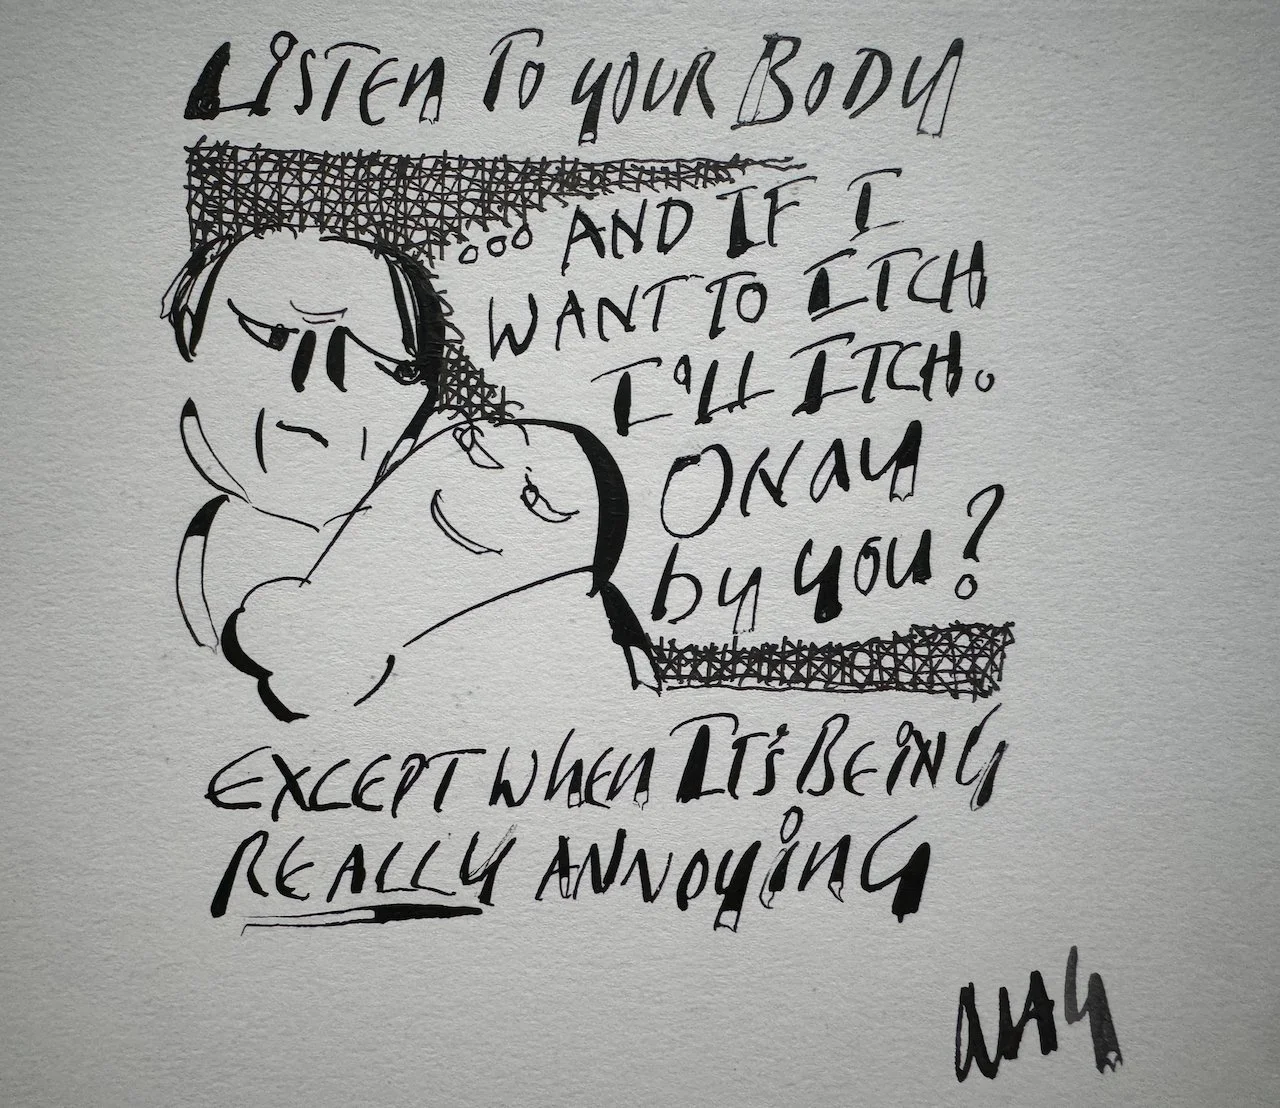 LISTEN TO YOUR BODY
... AND IF I
WANT TO ITCH
I'LL ITCH.
OKAY
by you?
EXCEPT WHEN IT'S BEING
REALLY ANNOYING